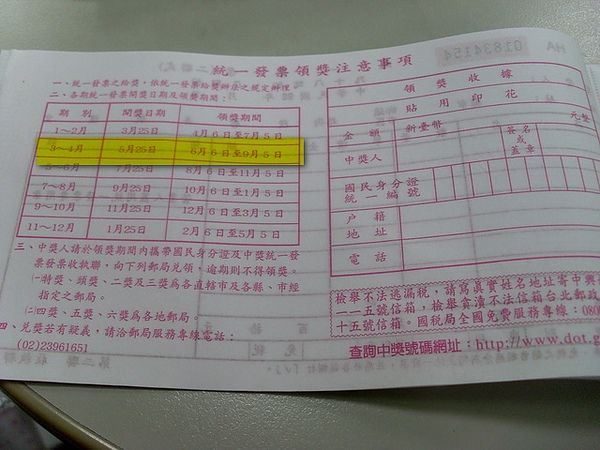 統一發票領獎注意事項
一、統一發票之給獎,依統一發票給獎辦法之規定辦理。
二、各期統一發票開獎日期及領獎期間:
期 別 開獎日期 領獎期間
1～2月 3月25日 4月6日至7月5日
3～4月 5月25日 6月6日至9月5日
5～6月 7月25日 8月6日至11月5日
7～8月 9月25日 10月6日至1月5日
9～10月 11月25日 12月6日至3月5日
11～12月 1月25日 2月6日至5月5日
三、中獎人請於領獎期間內攜帶國民身分證及中獎統一發
票收執聯,向下列郵局兌領,逾期則不得領獎。
㈠特獎、頭獎、二獎及三獎為各直轄市及各縣、市經
指定之郵局。
㈡四獎、五獎、六獎為各地郵局。
四、兌獎若有疑義,請洽郵局服務專線電話:
(02)23961651
領獎收據
貼用印花
金額 新臺幣 元整
中獎人 簽名或蓋章
國民身分證統一編號
戶籍地址
電話
檢舉不法逃漏税,請寫真實姓名地址寄中興
一一五號信箱,檢舉貪瀆不法信箱台北郵政
十五號信箱。國税局全國免費服務專線:080
查詢中獎號碼網址:http://www.dot.g
HA 01834154